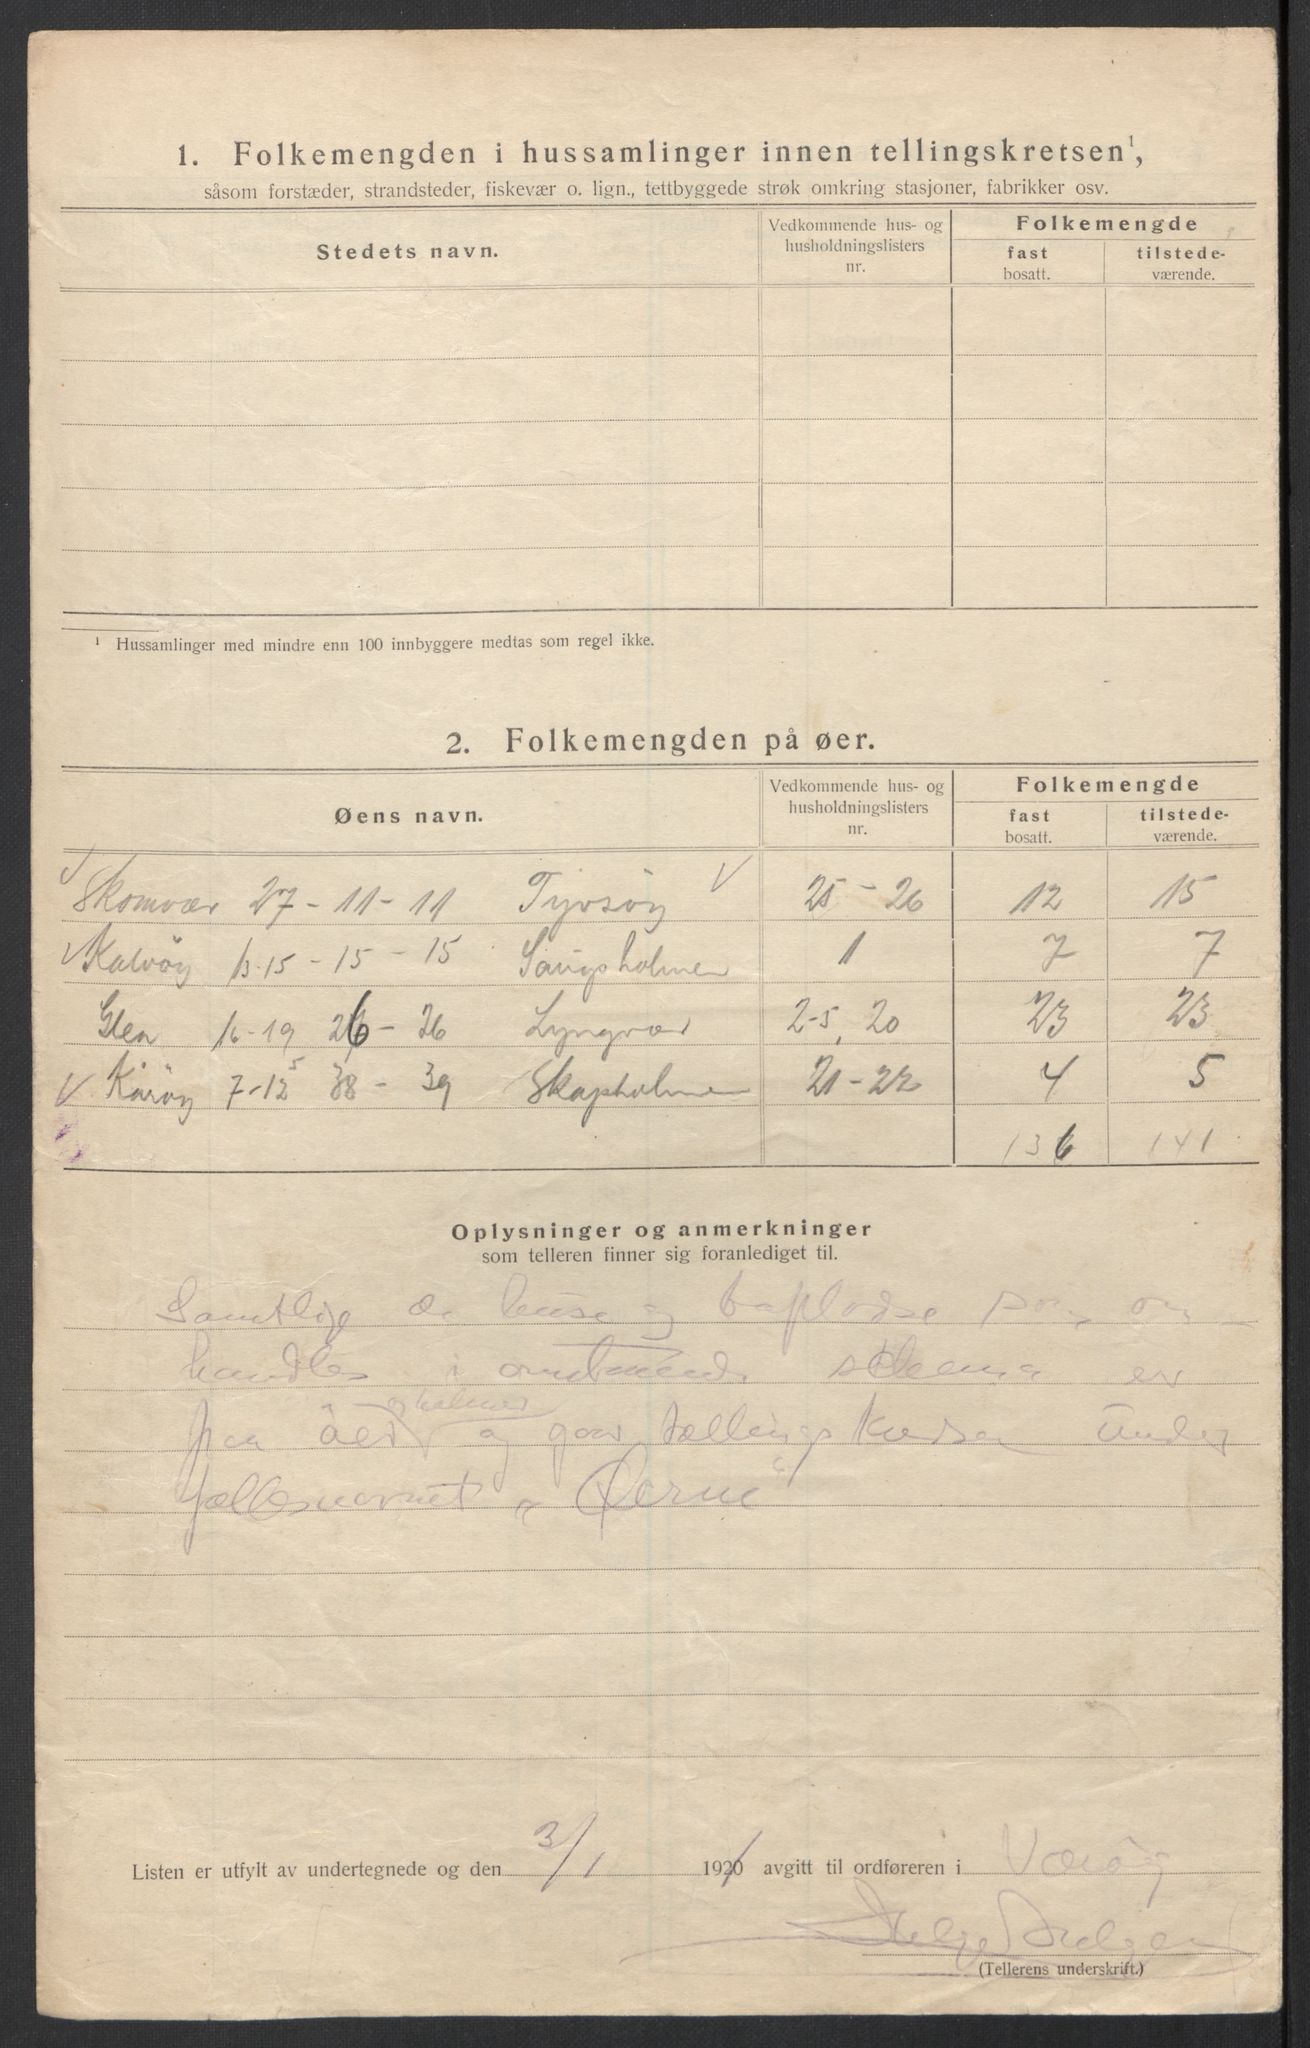 1. Folkemengden i hussamlinger innen tellingskretsen¹,
såsom forstæder, strandsteder, fiskevær o. lign., tettbyggede strøk omkring stasjoner, fabrikker osv.
Stedets navn.
Vedkommende hus- og husholdningslisters nr.
Folkemengde
fast bosatt.
tilstede-værende.
¹ Hussamlinger med mindre enn 100 innbyggere medtas som regel ikke.
2. Folkemengden på øer.
Øens navn.
Vedkommende hus- og husholdningslisters nr.
Folkemengde
fast bosatt.
tilstede-værende.
Skomvær 27 - 11 - 11 Tyvsöy 25 - 26 12 15
Kalvöy 13-15 - 15 - 15 1 7 7
Glea 16-19 26 - 26 Lyngvær 2-5, 20 23 23
Kåröy 7-12 38 - 39 Skapholmen 21-22 4 5
136 141
Oplysninger og anmerkninger
som telleren finner sig foranlediget til.
Samtlige de huse og som om
handles i schema er
paa öer og holmer og gaar tællingskredsen under
fællesnavnet „Øerne“
Listen er utfylt av undertegnede og den 3/1 1921 avgitt til ordføreren i Væröy
Helge Helgesen
(Tellerens underskrift.)